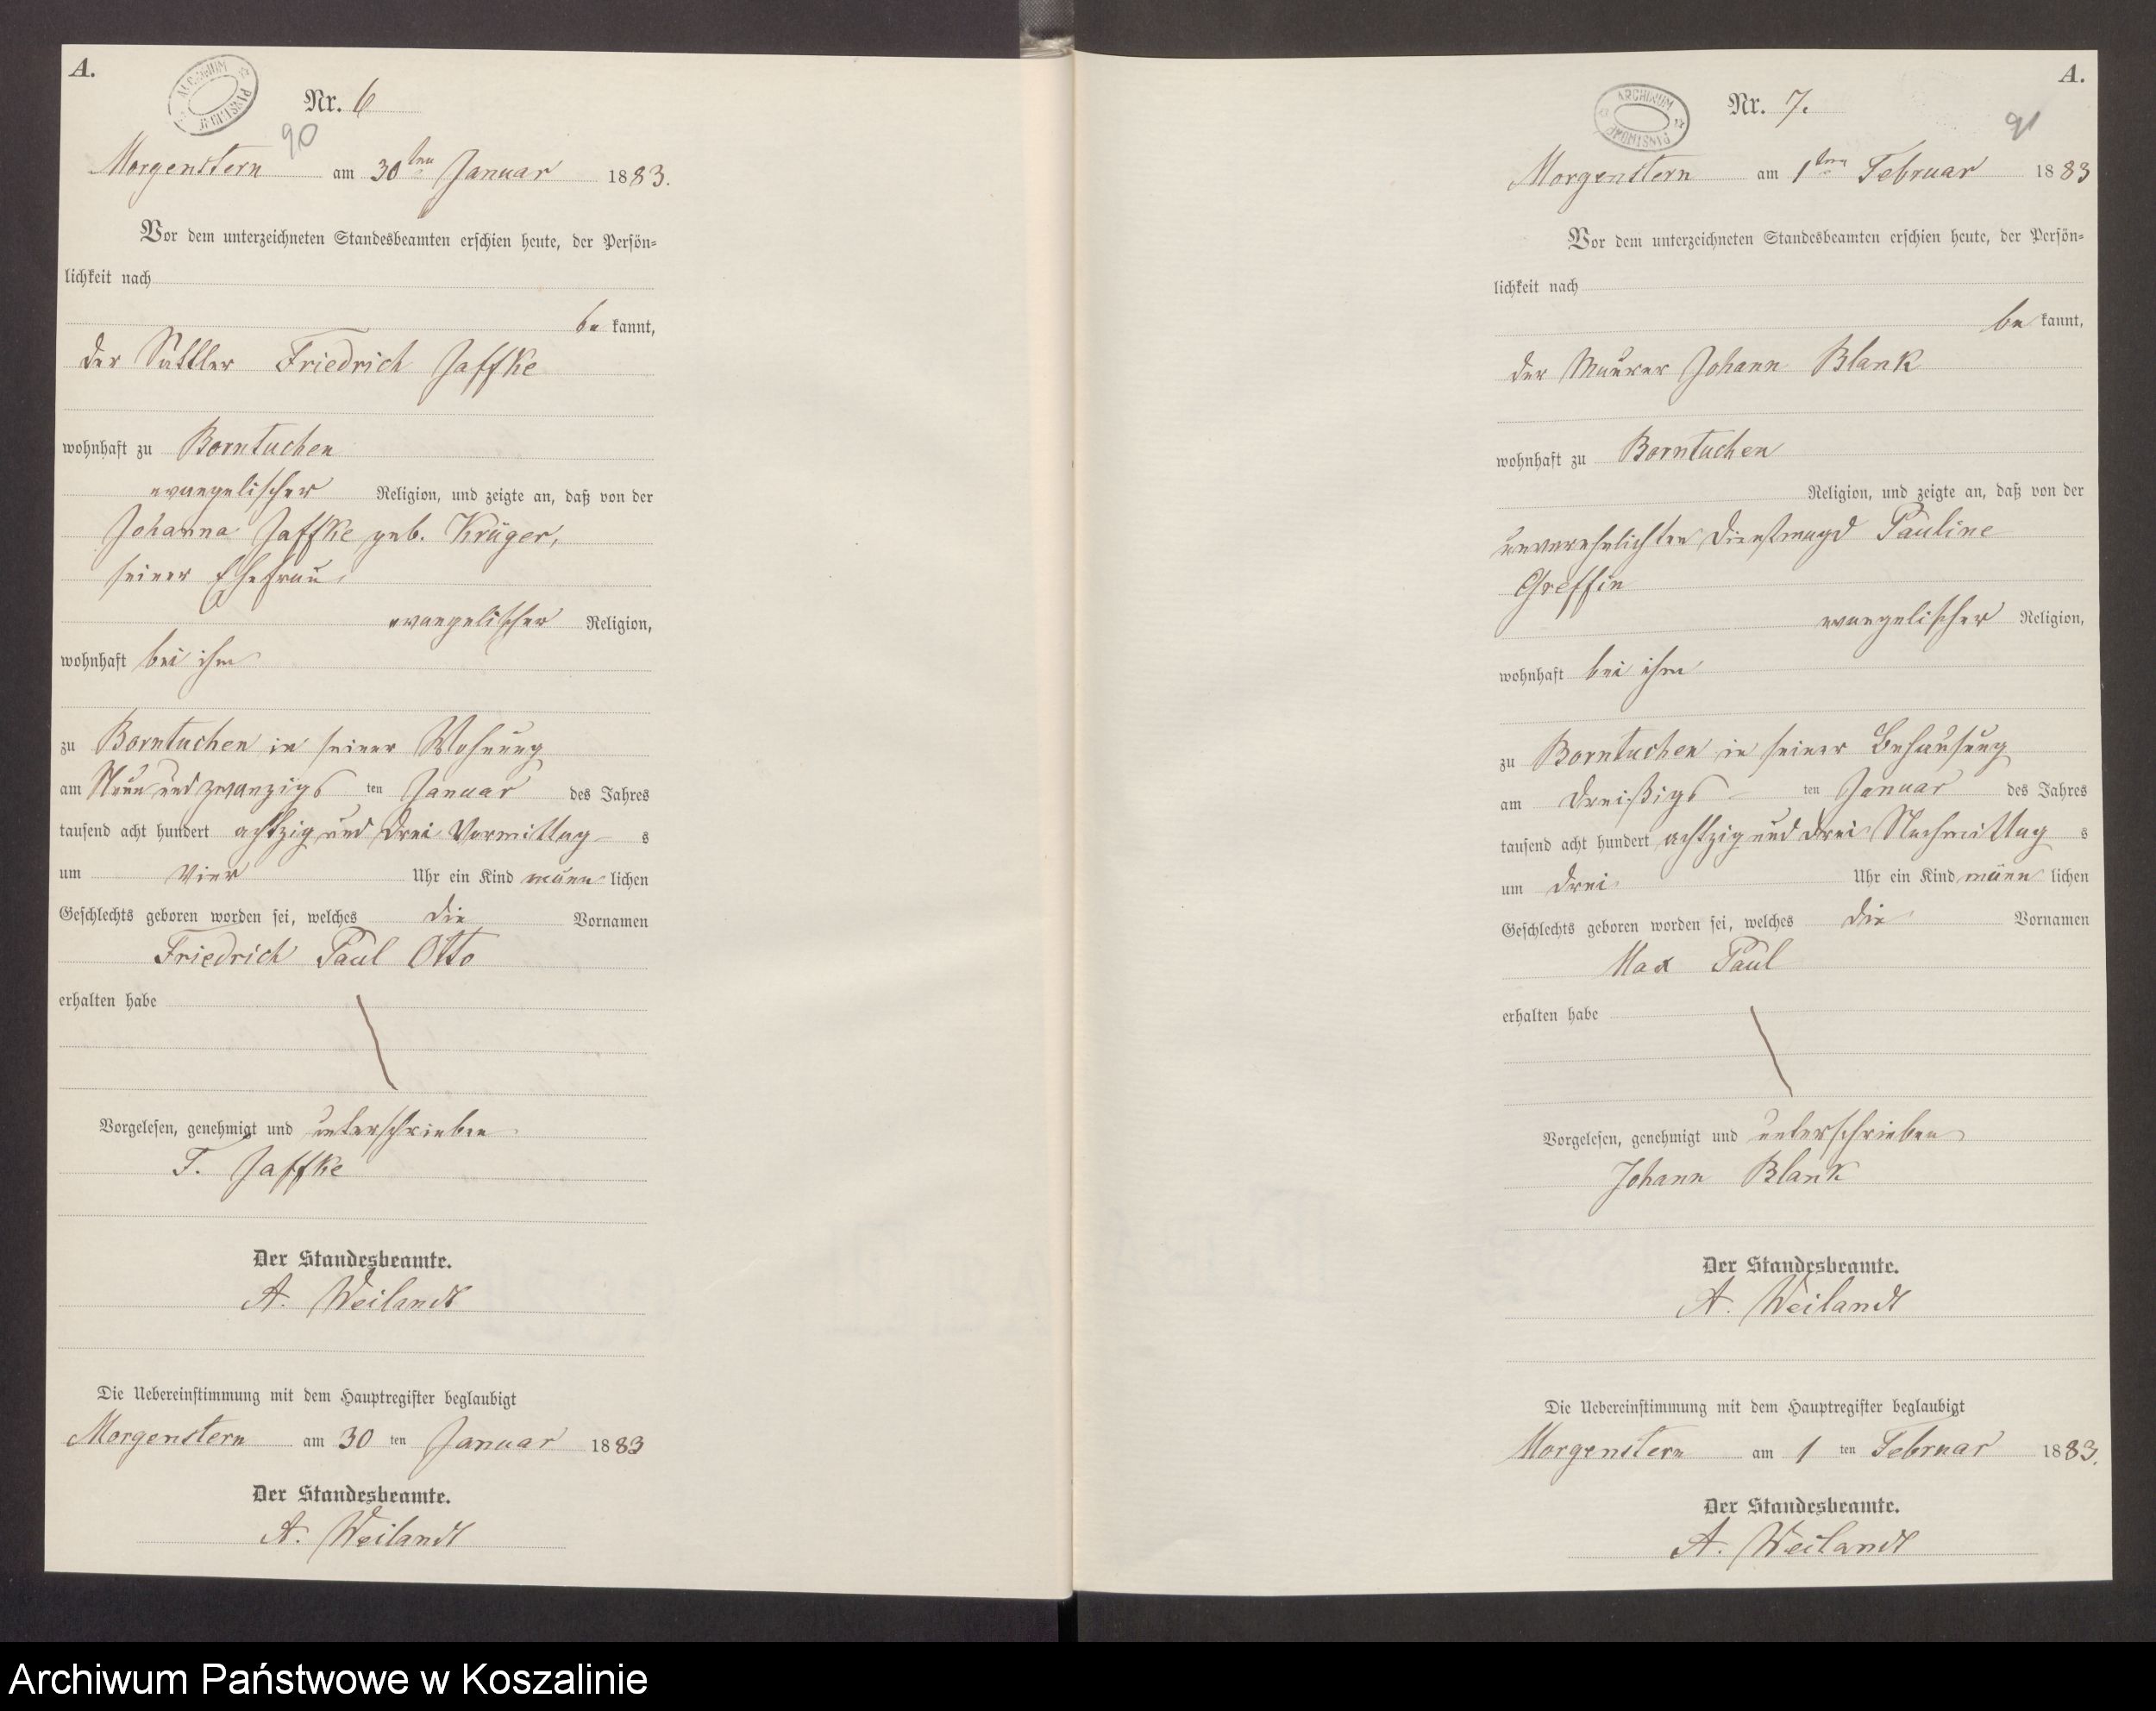 A.
ARCHIWUM PAŃSTWOWE
Nr. 6
90
Morgenstern am 30ten Januar 1883.
Vor dem unterzeichneten Standesbeamten erschien heute, der Persön=
lichkeit nach
be kannt,
der Sattler Friedrich Jaffke
wohnhaft zu Borntuchen
evangelischer Religion, und zeigte an, daß von der
Johanna Jaffke geb. Krüger,
seiner Ehefrau
evangelischer Religion,
wohnhaft bei ihm
zu Borntuchen in seiner Wohnung
am Neun und zwanzigs ten Januar des Jahres
tausend acht hundert achtzig und drei Vormittag s
um Vier Uhr ein Kind männ lichen
Geschlechts geboren worden sei, welches die Vornamen
Friedrich Paul Otto
erhalten habe
Vorgelesen, genehmigt und unterschrieben
F. Jaffke
Der Standesbeamte.
A. Weilandt
Die Uebereinstimmung mit dem Hauptregister beglaubigt
Morgenstern am 30 ten Januar 1883
Der Standesbeamte.
A. Weilandt
A.
ARCHIWUM PAŃSTWOWE
Nr. 7.
91
Morgenstern am 1ten Februar 1883
Vor dem unterzeichneten Standesbeamten erschien heute, der Persön=
lichkeit nach
be kannt,
der Maurer Johann Blank
wohnhaft zu Borntuchen
Religion, und zeigte an, daß von der
unverehelichten Dienstmagd Pauline
Greffin
evangelischer Religion,
wohnhaft bei ihm
zu Borntuchen in seiner Behausung
am dreißigs ten Januar des Jahres
tausend acht hundert achtzig und drei Nachmittag s
um drei Uhr ein Kind männ lichen
Geschlechts geboren worden sei, welches die Vornamen
Max Paul
erhalten habe
Vorgelesen, genehmigt und unterschrieben
Johann Blank
Der Standesbeamte.
A. Weilandt
Die Uebereinstimmung mit dem Hauptregister beglaubigt
Morgenstern am 1 ten Februar 1883.
Der Standesbeamte.
A. Weilandt
Archiwum Państwowe w Koszalinie